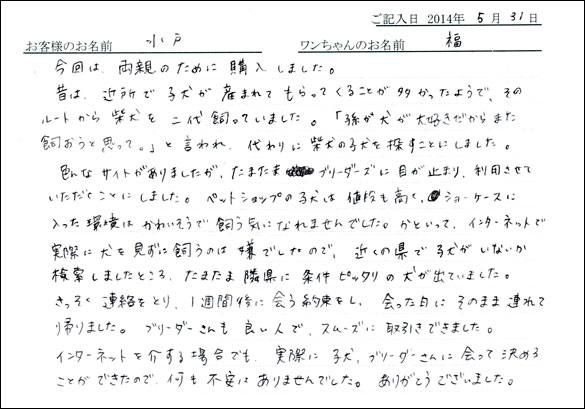 ご記入日 2014年 5月 31日
お客様のお名前 水戸 ワンちゃんのお名前 福
今回は、両親のために購入しました。
昔は、近所で子犬が産まれてもらってくることが多かったようで、その
ルートから柴犬を二代飼っていました。「孫が犬が大好きだからまた
飼おうと思って。」と言われ、代わりに柴犬の子犬を探すことにしました。
色んなサイトがありましたが、たまたまブリーダーズに目が止まり、利用させて
いただくことにしました。ペットショップの子犬は値段も高く、ショーケースに
入った環境はかわいそうで飼う気になれませんでした。かといって、インターネットで
実際に犬を見ずに飼うのは嫌でしたので、近くの県で子犬がいないか
検索しましたところ、たまたま隣県に条件ピッタリの犬が出ていました。
さっそく連絡をとり、1週間後に会う約束をし、会った日にそのまま連れて
帰りました。ブリーダーさんも良い人で、スムーズに取引きできました。
インターネットを介する場合でも、実際に子犬、ブリーダーさんに会って決める
ことができたので、何も不安はありませんでした。ありがとうございました。